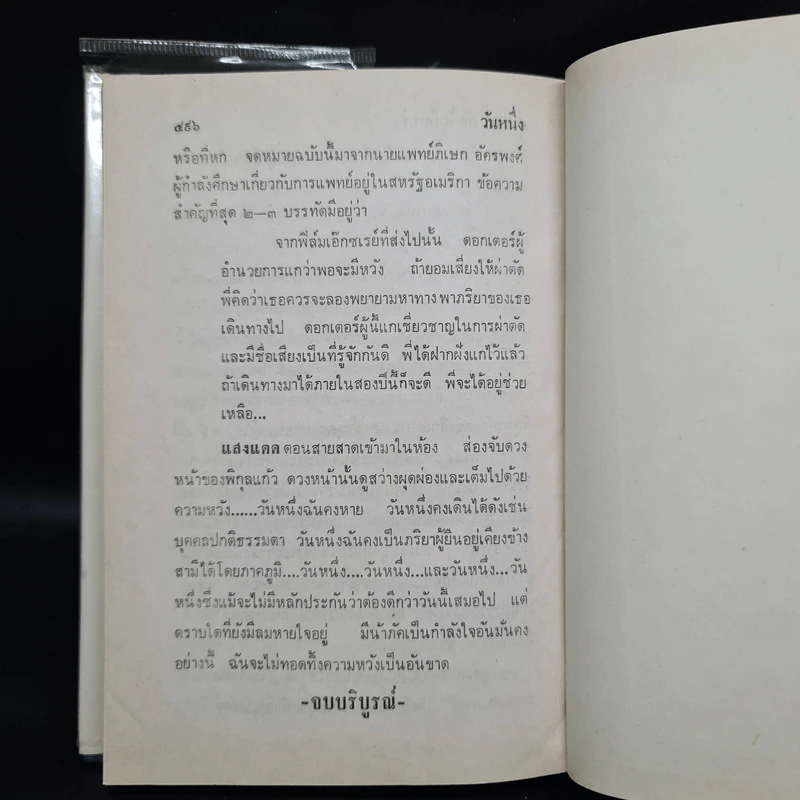 ๔๕๖ วันหนึ่ง
หรือที่หก จดหมายฉบับนี้มาจากนายแพทย์ภิเษก อัครพงศ์
ผู้กำลังศึกษาเกี่ยวกับการแพทย์อยู่ในสหรัฐอเมริกา ข้อความ
สำคัญที่สุด ๒—๓ บรรทัดมีอยู่ว่า
จากฟิล์มเอ๊กซเรย์ที่ส่งไปนั้น ดอกเตอร์ผู้
อำนวยการแกว่าพอจะมีหวัง ถ้ายอมเสี่ยงให้ผ่าตัด
พี่คิดว่าเธอควรจะลองพยายามหาทางพาภริยาของเธอ
เดินทางไป ดอกเตอร์ผู้นี้แกเชี่ยวชาญในการผ่าตัด
และมีชื่อเสียงเป็นที่รู้จักกันดี พี่ได้ฝากฝังแกไว้แล้ว
ถ้าเดินทางมาได้ภายในสองปีนี้ก็จะดี พี่จะได้อยู่ช่วย
เหลือ...
แสงแดดตอนสายสาดเข้ามาในห้อง ส่องจับดวง
หน้าของพิกุลแก้ว ดวงหน้านั้นดูสว่างผุดผ่องและเต็มไปด้วย
ความหวัง......วันหนึ่งฉันคงหาย วันหนึ่งคงเดินได้ดังเช่น
บุคคลปกติธรรมดา วันหนึ่งฉันคงเป็นภริยาผู้ยืนอยู่เคียงข้าง
สามีได้โดยภาคภูมิ....วันหนึ่ง....วันหนึ่ง...และวันหนึ่ง...วัน
หนึ่งซึ่งแม้จะไม่มีหลักประกันว่าต้องดีกว่าวันนี้เสมอไป แต่
ตราบใดที่ยังมีลมหายใจอยู่ มีน้าภัคเป็นกำลังใจอันมั่นคง
อย่างนี้ ฉันจะไม่ทอดทิ้งความหวังเป็นอันขาด
-จบบริบูรณ์-